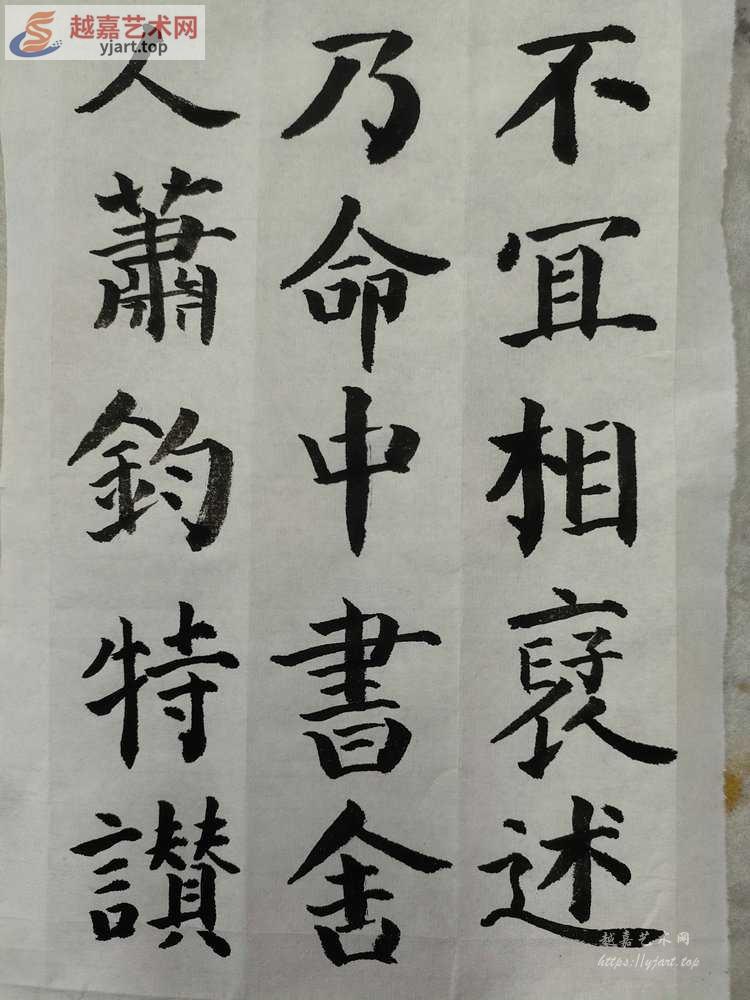 不冝相襃述
乃命中書舍
人蕭鈞特讃
越嘉艺术网
yjart.top
越嘉艺术网
https://yjart.top